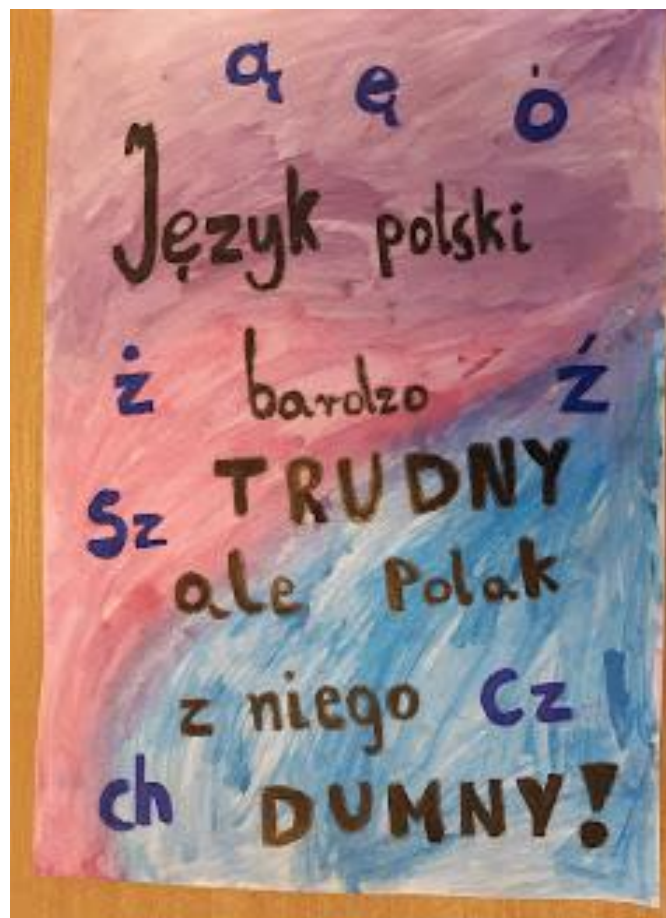 ą ę ó
Język polski
ż bardzo ź
TRUDNY
Sz
ale Polak
z niego Cz
ch DUMNY!